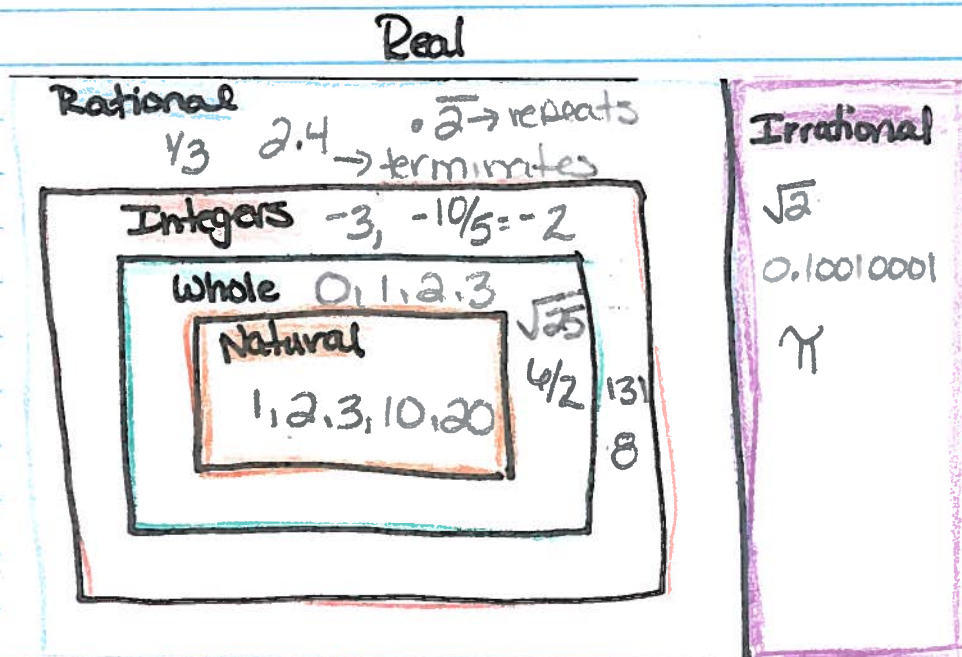 Real
Rational
1/3 2.4 → terminates
.2̅ → repeats
Integers -3, -10/5=-2
Whole 0,1,2,3
√25
6/2
131
8
Natural
1,2,3,10,20
Irrational
√2
0.10010001
π